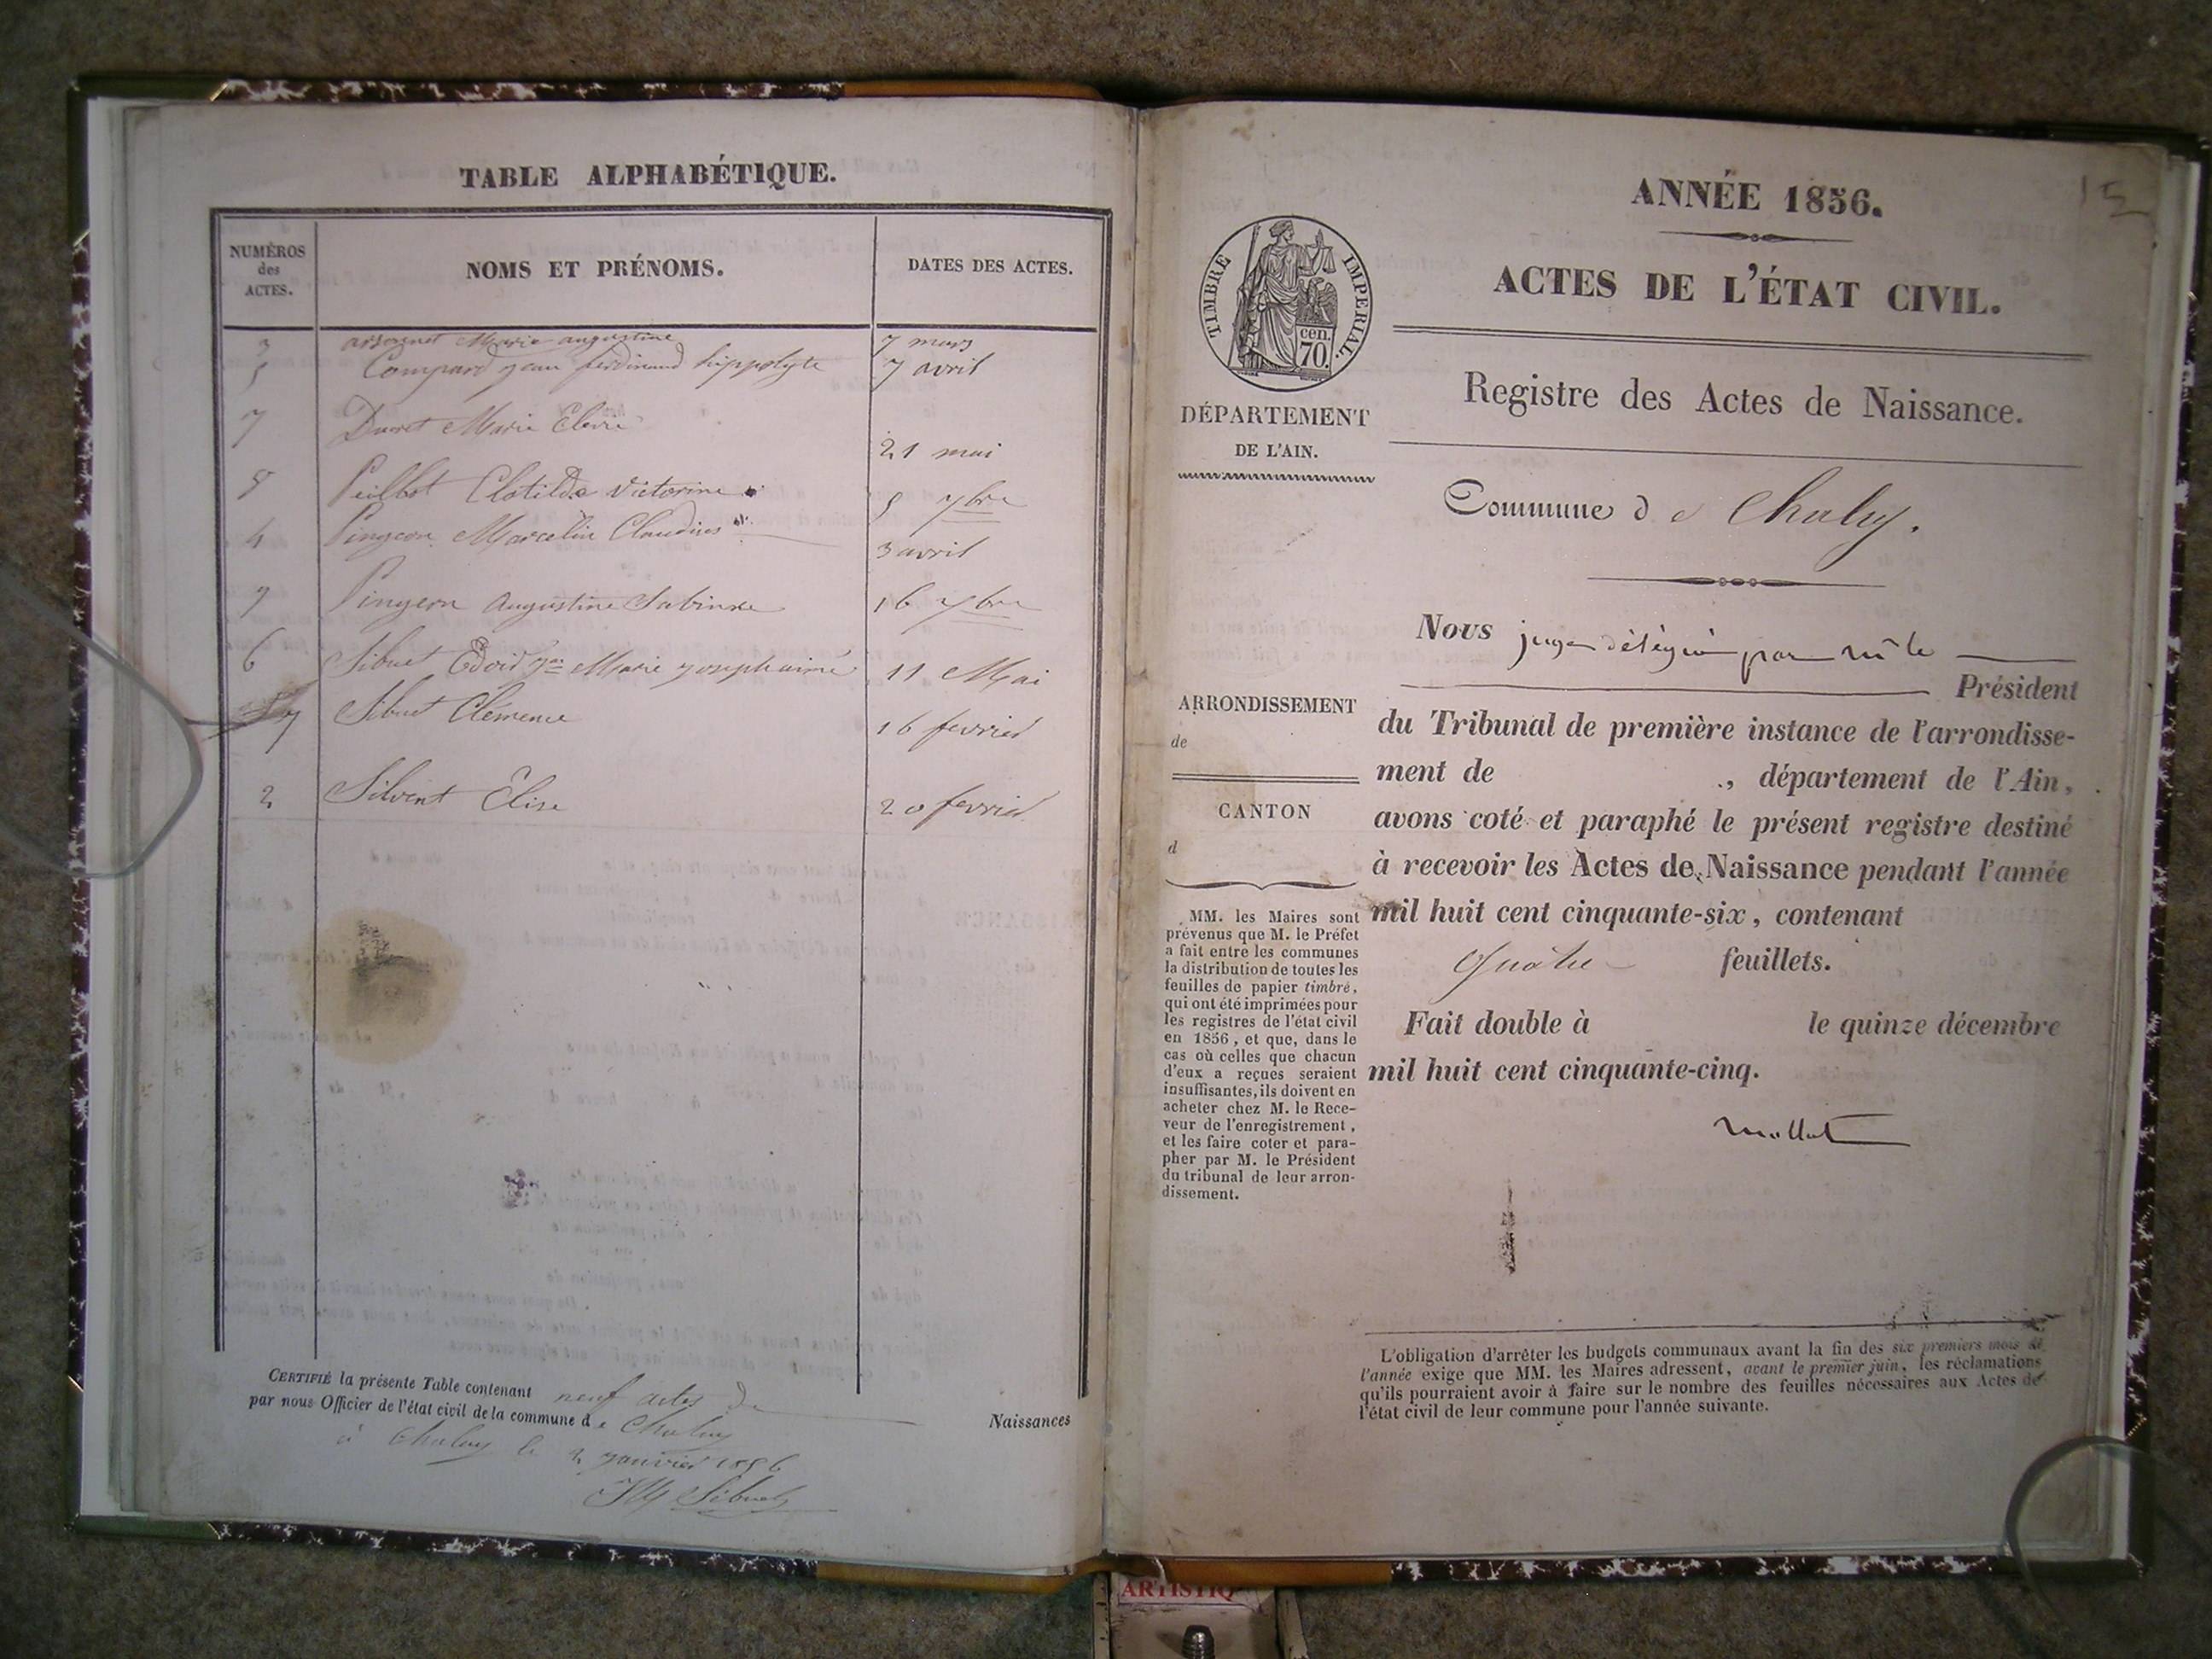 TABLE ALPHABÉTIQUE.
NUMÉROS
des
ACTES.
NOMS ET PRÉNOMS.
DATES DES ACTES.
3 Marie augustine 7 mars
5 Compard jean ferdinand hippolyte 7 avril
7 Duret Marie 21 mai
8 Peillot Clotilde victorine 5 7bre
4 Pingeon Marcelin Claudius 3 avril
9 Pingeon Augustine Sabine 16 7bre
6 Sibuet Marie joseph aimé 11 Mai
Sibuet Clémence 16 fevrier
2 Silvent Elise 20 fevrier
CERTIFIÉ la présente Table contenant neuf actes de
Naissances
par nous Officier de l'état civil de la commune de Chaley
à Chaley le 2 janvier 1856
Sibuet
15
ANNÉE 1856.
ACTES DE L'ÉTAT CIVIL.
TIMBRE IMPERIAL.
cen.
70.
Registre des Actes de Naissance.
DÉPARTEMENT
DE L'AIN.
Commune de Chaley.
Nous juge délégué par Mr le
Président
ARRONDISSEMENT
de
CANTON
d
du Tribunal de première instance de l'arrondisse-
ment de , département de l'Ain,
avons coté et paraphé le présent registre destiné
à recevoir les Actes de Naissance pendant l'année
mil huit cent cinquante-six, contenant
Quatre feuillets.
Fait double à le quinze décembre
mil huit cent cinquante-cinq.
MM. les Maires sont
prévenus que M. le Préfet
a fait entre les communes
la distribution de toutes les
feuilles de papier timbré,
qui ont été imprimées pour
les registres de l'état civil
en 1856, et que, dans le
cas où celles que chacun
d'eux a reçues seraient
insuffisantes, ils doivent en
acheter chez M. le Rece-
veur de l'enregistrement,
et les faire coter et para-
pher par M. le Président
du tribunal de leur arron-
dissement.
L'obligation d'arrêter les budgets communaux avant la fin des six premiers mois de
l'année exige que MM. les Maires adressent, avant le premier juin, les réclamations
qu'ils pourraient avoir à faire sur le nombre des feuilles nécessaires aux Actes de
l'état civil de leur commune pour l'année suivante.
ARTISTIQ